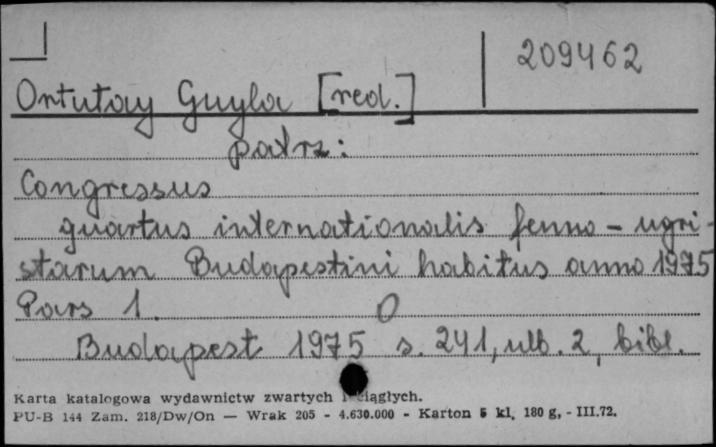 209462
Ortutay Guyla [red.]
patrz:
Congressus
quartus internationalis fenno-ugri-
starum Budapestini habitus anno 1975
Pars 1.
Budapest 1975 s. 241, ulb. 2, bibl.
Karta katalogowa wydawnictw zwartych i ciągłych.
PU-B 144 Zam. 218/Dw/On — Wrak 205 - 4.630.000 - Karton 5 kl. 180 g, - III.72.